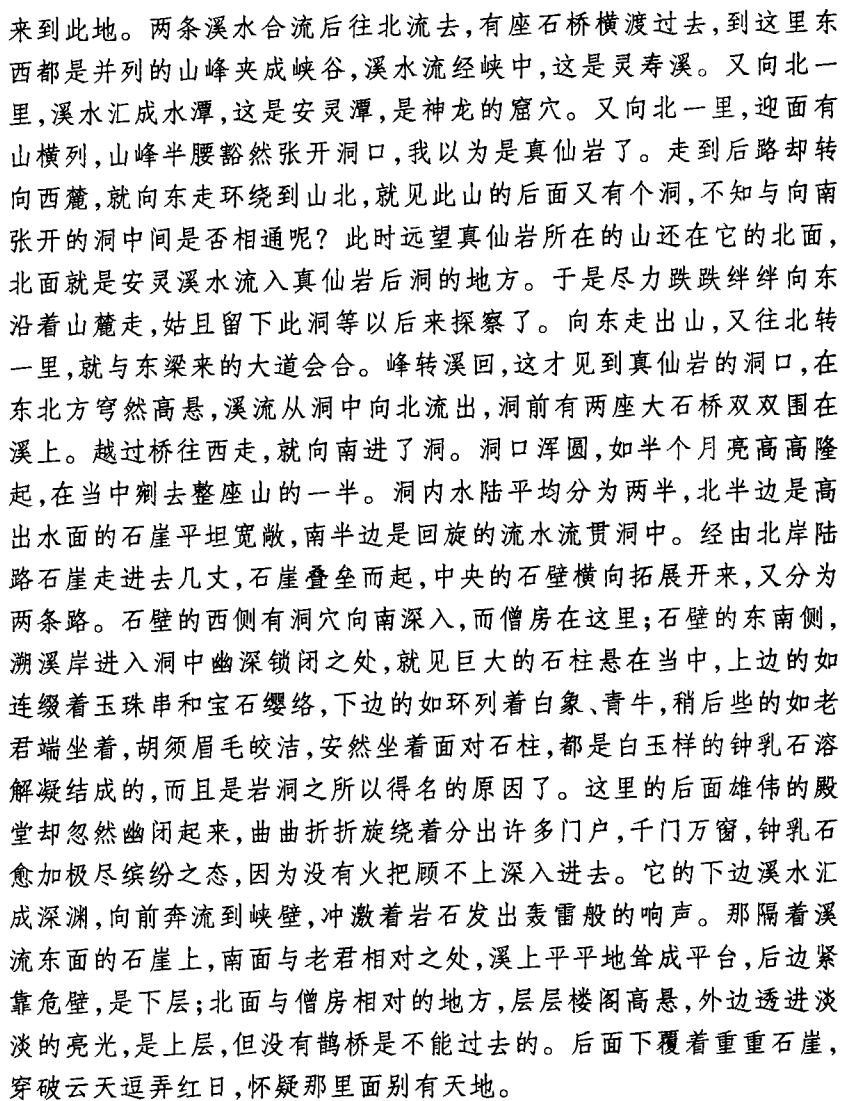 来到此地。两条溪水合流后往北流去,有座石桥横渡过去,到这里东
西都是并列的山峰夹成峡谷,溪水流经峡中,这是灵寿溪。又向北一
里,溪水汇成水潭,这是安灵潭,是神龙的窟穴。又向北一里,迎面有
山横列,山峰半腰豁然张开洞口,我以为是真仙岩了。走到后路却转
向西麓,就向东走环绕到山北,就见此山的后面又有个洞,不知与向南
张开的洞中间是否相通呢?此时远望真仙岩所在的山还在它的北面,
北面就是安灵溪水流入真仙岩后洞的地方。于是尽力跌跌绊绊向东
沿着山麓走,姑且留下此洞等以后来探察了。向东走出山,又往北转
一里,就与东梁来的大道会合。峰转溪回,这才见到真仙岩的洞口,在
东北方穹然高悬,溪流从洞中向北流出,洞前有两座大石桥双双围在
溪上。越过桥往西走,就向南进了洞。洞口浑圆,如半个月亮高高隆
起,在当中剜去整座山的一半。洞内水陆平均分为两半,北半边是高
出水面的石崖平坦宽敞,南半边是回旋的流水流贯洞中。经由北岸陆
路石崖走进去几丈,石崖叠垒而起,中央的石壁横向拓展开来,又分为
两条路。石壁的西侧有洞穴向南深入,而僧房在这里;石壁的东南侧,
溯溪岸进入洞中幽深锁闭之处,就见巨大的石柱悬在当中,上边的如
连缀着玉珠串和宝石缨络,下边的如环列着白象、青牛,稍后些的如老
君端坐着,胡须眉毛皎洁,安然坐着面对石柱,都是白玉样的钟乳石溶
解凝结成的,而且是岩洞之所以得名的原因了。这里的后面雄伟的殿
堂却忽然幽闭起来,曲曲折折旋绕着分出许多门户,千门万窗,钟乳石
愈加极尽缤纷之态,因为没有火把顾不上深入进去。它的下边溪水汇
成深渊,向前奔流到峡壁,冲激着岩石发出轰雷般的响声。那隔着溪
流东面的石崖上,南面与老君相对之处,溪上平平地耸成平台,后边紧
靠危壁,是下层;北面与僧房相对的地方,层层楼阁高悬,外边透进淡
淡的亮光,是上层,但没有鹊桥是不能过去的。后面下覆着重重石崖,
穿破云天逗弄红日,怀疑那里面别有天地。